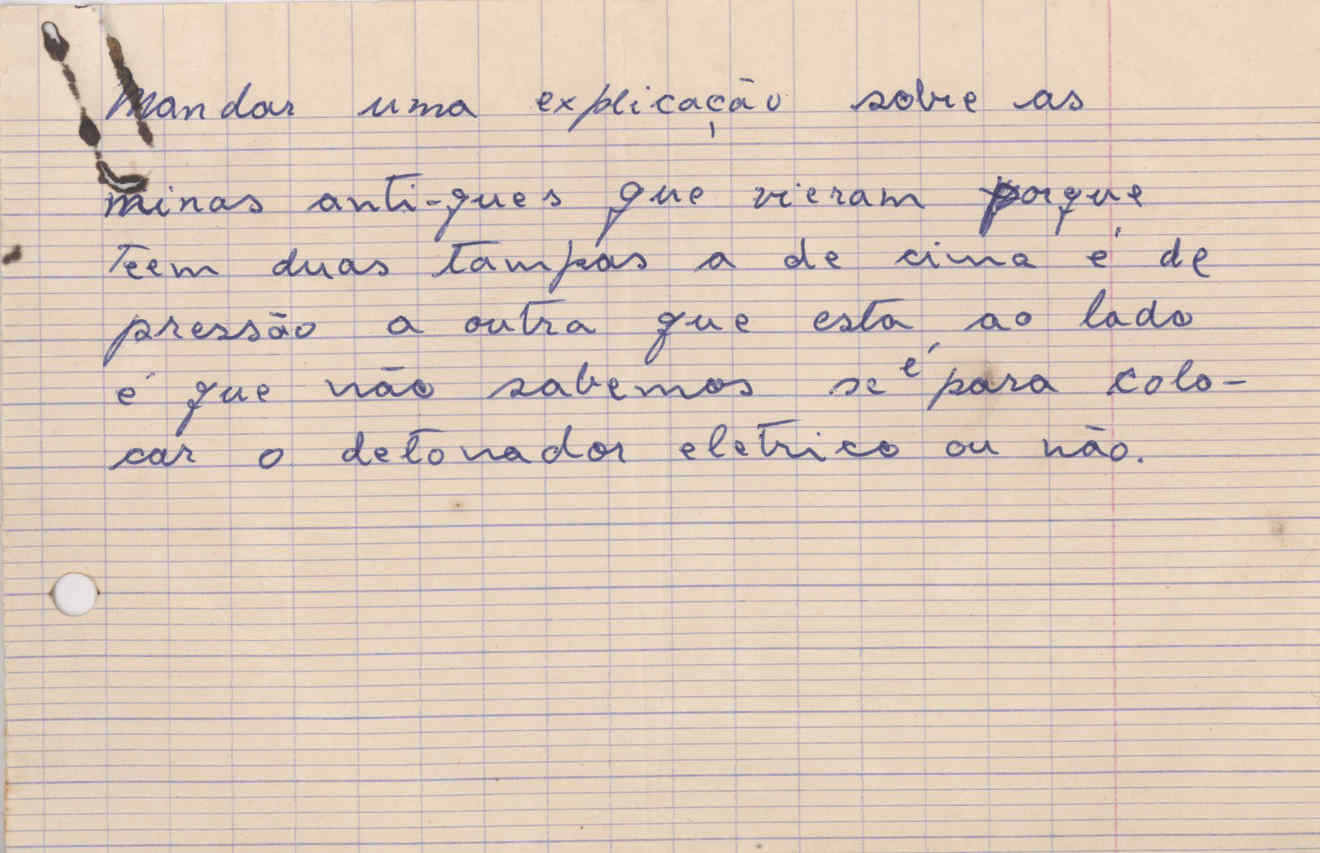 Mandar uma explicação sobre as
minas anti-gues que vieram porque
teem duas tampas a de cima é de
pressão a outra que esta ao lado
é que não sabemos se é para colo-
car o detonador eletrico ou não.